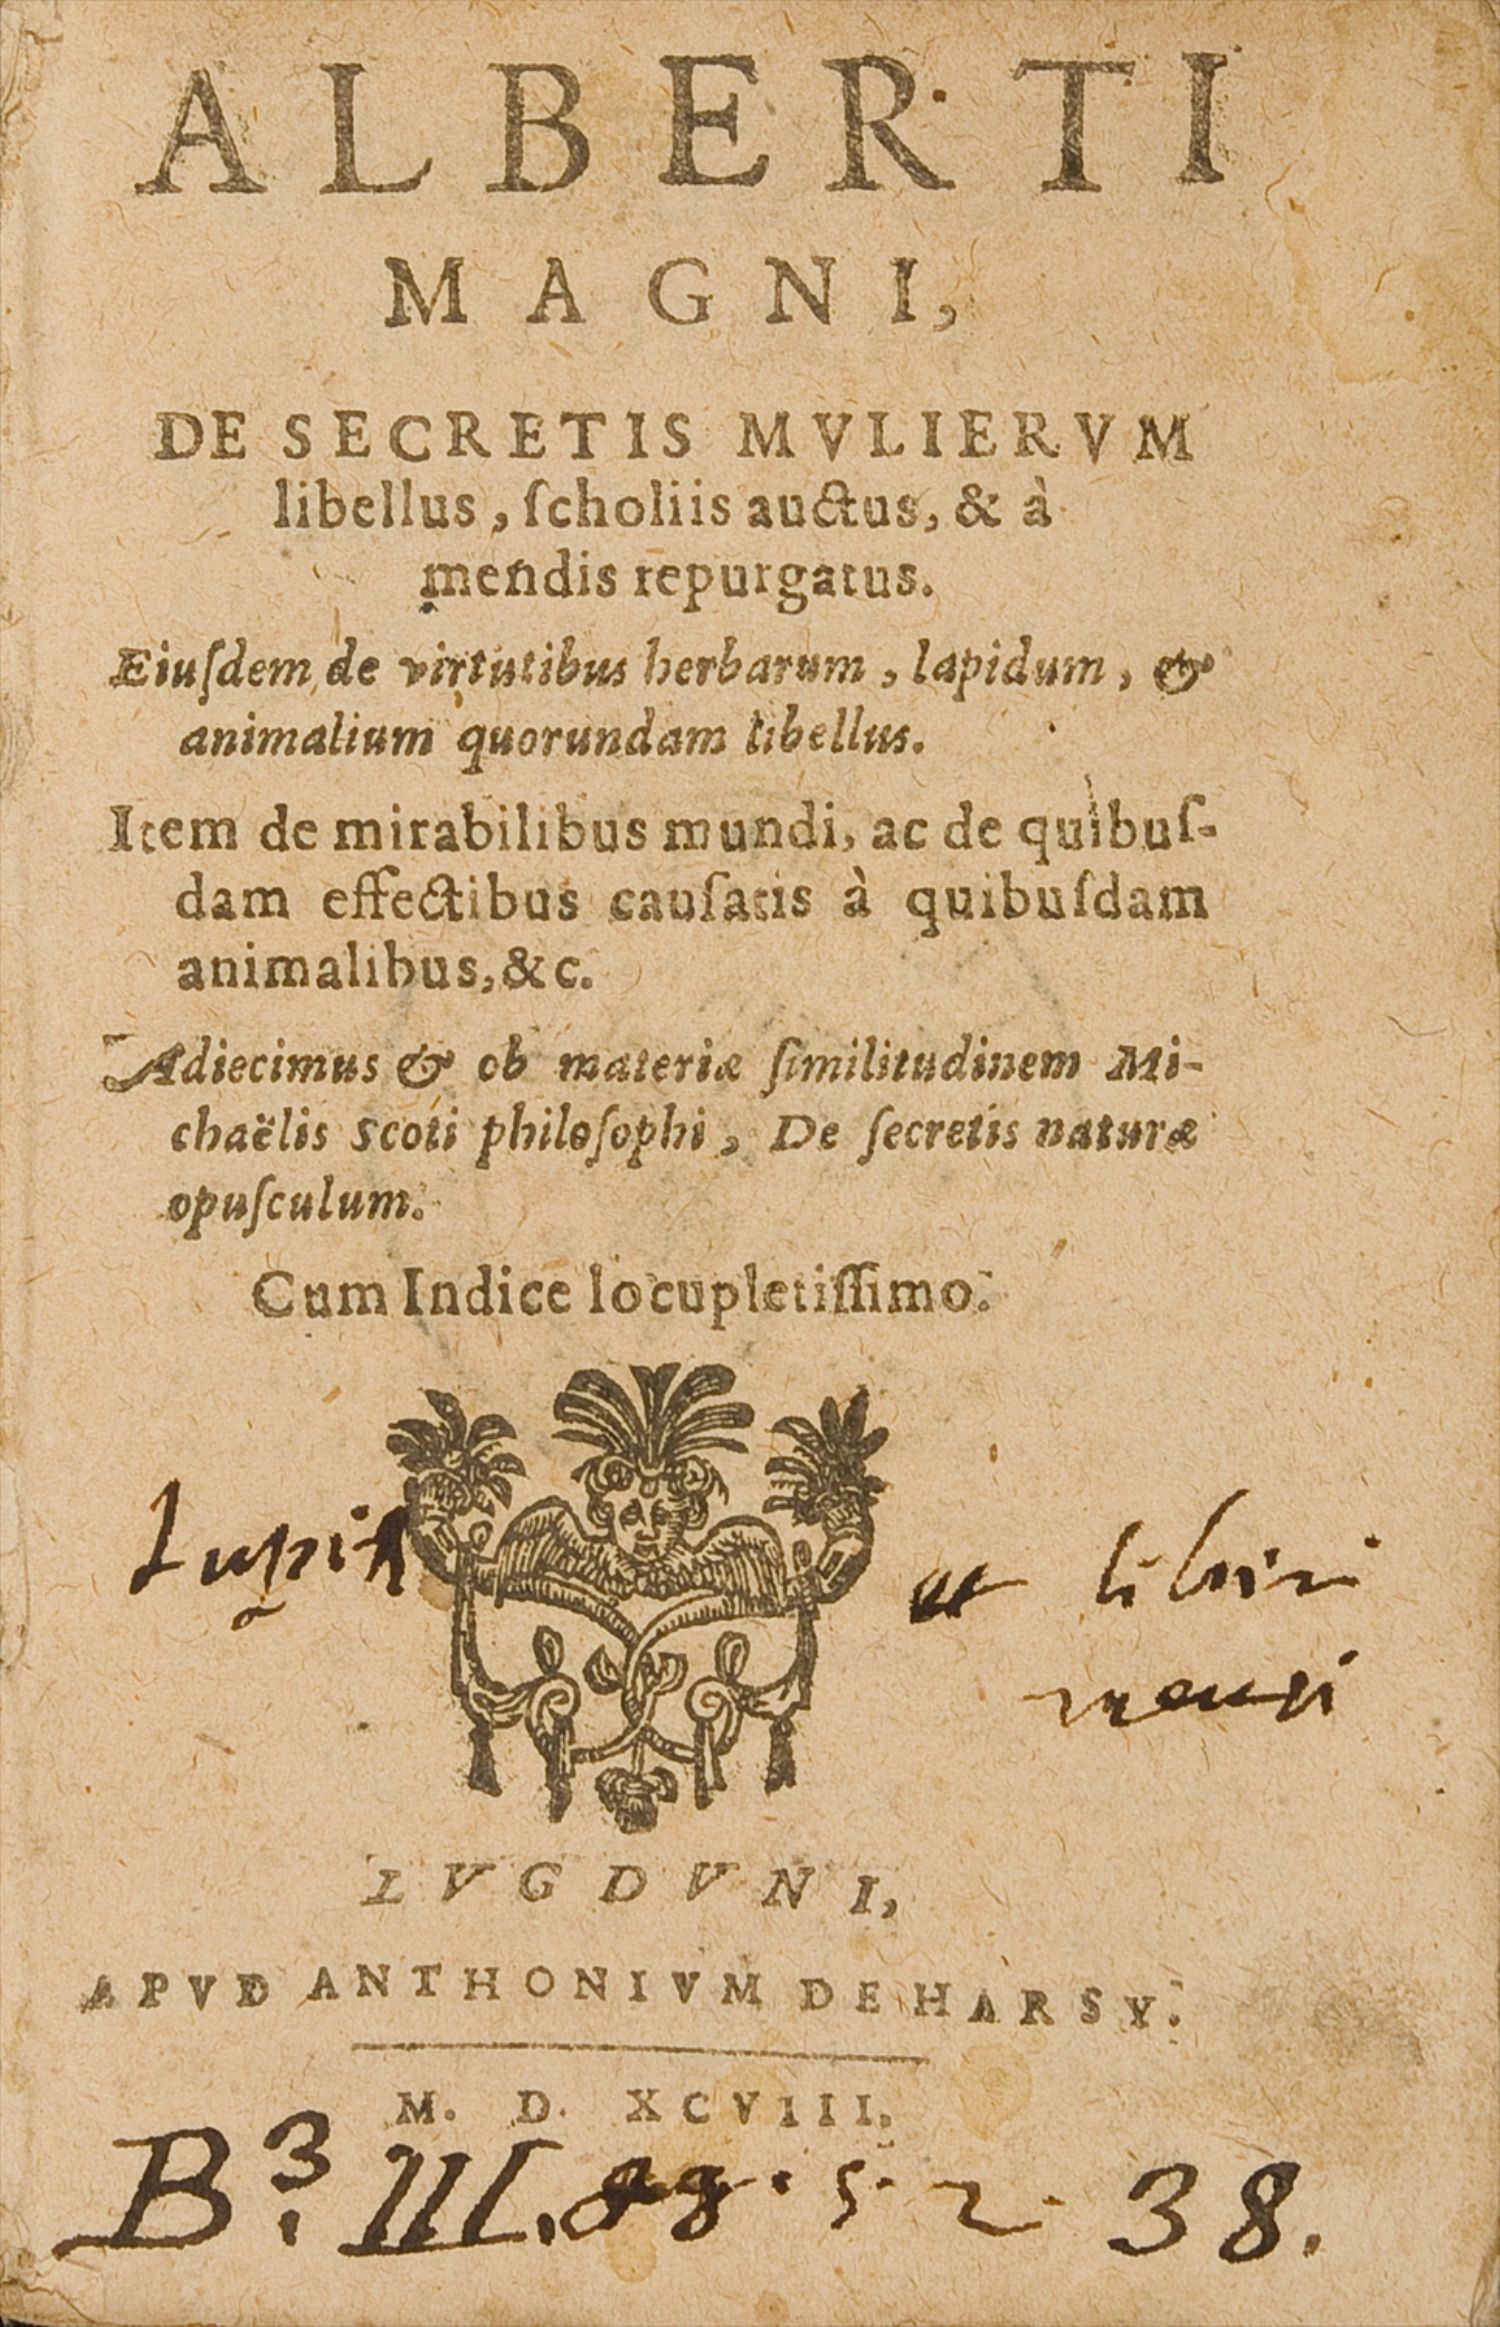 ALBERTI
MAGNI,
DE SECRETIS MVLIERVM
libellus, ſcholiis auctus, & à
mendis repurgatus.
Eiuſdem de virtutibus herbarum, lapidum, &
animalium quorundam libellus.
Item de mirabilibus mundi, ac de quibuſ-
dam effectibus cauſatis à quibuſdam
animalibus, &c.
Adiecimus & ob materiæ ſimilitudinem Mi-
chaëlis Scoti philoſophi, De ſecretis naturæ
opuſculum.
Cum Indice locupletiſſimo.
LVGDVNI,
APVD ANTHONIVM DE HARSY.
M. D. XCVIII.
B. 3 III. 5. 2. 38.